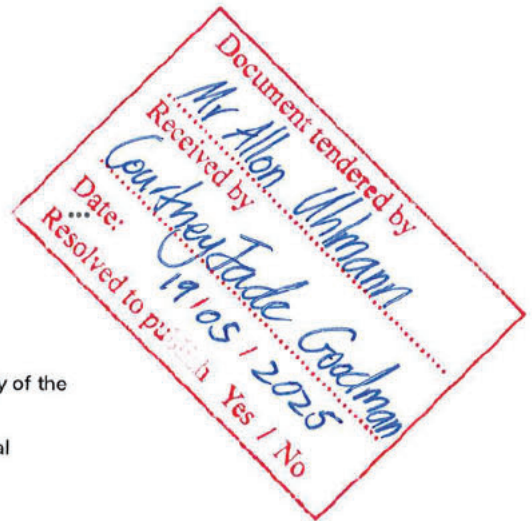 Document tendered by
Mr Allon Uhlmann
Received by
Courtney Jade Goodman
Date:
19/05/2025
Resolved to publish Yes / No
y of the
al